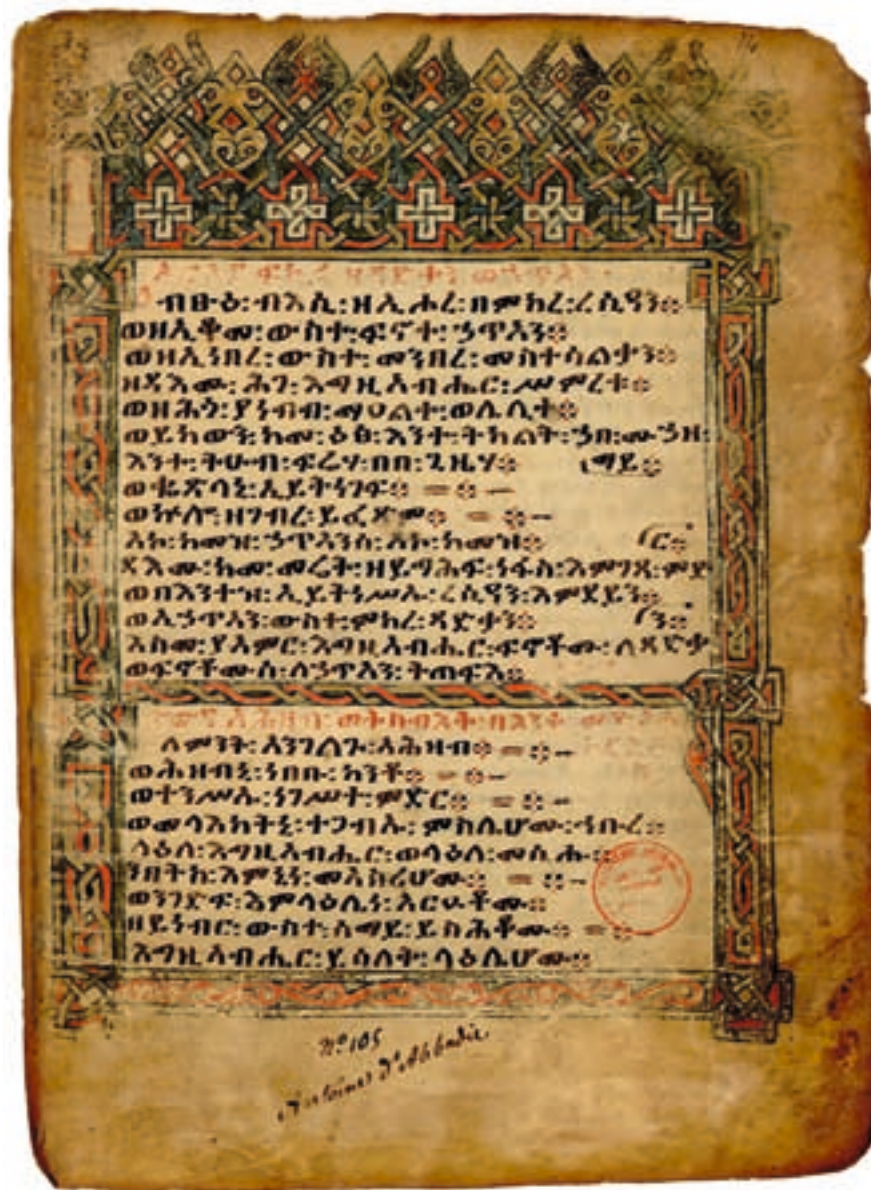 ብፁዕ፡ብእሲ፡ዘኢሖረ፡በምክረ፡ረሲዓን።
ወዘኢቆመ፡ውስተ፡ፍኖተ፡ኃጥኣን።
ወዘኢነበረ፡ውስተ፡መንበረ፡መስተሳልቃን።
ዘዳእሙ፡ሕገ፡እግዚአብሔር፡ሥምረቱ።
ወዘሕጎ፡ያነብብ፡ማዐልተ፡ወሌሊተ።
ወይከውን፡ከመ፡ዕፅ፡እንተ፡ትክልት፡ኃበ፡ሙኃዘ፡
እንተ፡ትሁብ፡ፍሬሃ፡በበ፡ጊዜሃ። ማይ።
ወቈጽላኒ፡ኢይትነገፍ። = ። –
ወኵሎ፡ዘገብረ፡ይፈጽም። = ። –
አኮ፡ከመዝ፡ኃጥኣንሰ፡አኮ፡ከመዝ። ር።
ዳእሙ፡ከመ፡መሬት፡ዘይግሕፍ፡ነፋስ፡እምገጸ፡ምድ
ወበእንተዝ፡ኢይትነሥኡ፡ረሲዓን፡እምደይን።
ወኢኃጥኣን፡ውስተ፡ምክረ፡ጻድቃን። ን።
እስመ፡ያአምር፡እግዚአብሔር፡ፍኖቶሙ፡ለጻድቃ
ወፍኖቶሙሰ፡ለኃጥኣን፡ትጠፍእ።
ለምንት፡አንገለጉ፡አሕዛብ። = ። –
ወሕዝብኒ፡ነበቡ፡ከንቶ። = ። –
ወተንሥኡ፡ነገሥተ፡ምድር። = ። –
ወመላእክትኒ፡ተጋብኡ፡ምስሌሆሙ፡ኅቡረ።
ላዕለ፡እግዚአብሔር፡ወላዕለ፡መሲሑ።
ንበትክ፡እምኔነ፡መኣስሪሆሙ። = ። –
ወንገድፍ፡እምላዕሌነ፡አርዑቶሙ።
ዘይነብር፡ውስተ፡ሰማይ፡ይስሕቆሙ። = ።
እግዚአብሔር፡ይሳለቅ፡ላዕሌሆሙ።
Nº 105
Antoine d'Abbadie